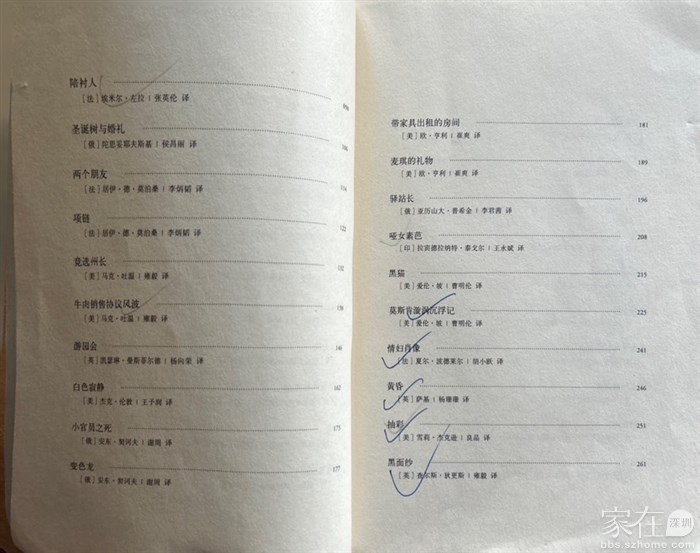 陪衬人
[法]埃米尔·左拉 | 张英伦 译
圣诞树与婚礼
[俄]陀思妥耶夫斯基 | 侯昌丽 译
106
两个朋友
[法]居伊·德·莫泊桑 | 李炳韬 译
114
项链
[法]居伊·德·莫泊桑 | 李炳韬 译
122
竞选州长
[美]马克·吐温 | 雍毅 译
132
牛肉销售协议风波
[美]马克·吐温 | 雍毅 译
138
游园会
[英]凯瑟琳·曼斯菲尔德 | 杨向荣 译
146
白色寂静
[美]杰克·伦敦 | 王予润 译
162
小官员之死
[俄]安东·契诃夫 | 谢周 译
173
变色龙
[俄]安东·契诃夫 | 谢周 译
177
带家具出租的房间
[美]欧·亨利 | 崔爽 译
181
麦琪的礼物
[美]欧·亨利 | 崔爽 译
189
驿站长
[俄]亚历山大·普希金 | 李君茜 译
196
哑女素芭
[印]拉宾德拉纳特·泰戈尔 | 王永斌 译
208
黑猫
[美]爱伦·坡 | 曹明伦 译
215
莫斯肯漩涡沉浮记
[美]爱伦·坡 | 曹明伦 译
225
情妇肖像
[法]夏尔·波德莱尔 | 胡小跃 译
241
黄昏
[英]萨基 | 杨珊珊 译
246
抽彩
[美]雪莉·杰克逊 | 良品 译
251
黑面纱
[英]查尔斯·狄更斯 | 雍毅 译
261
家在深圳
bbs.szhome.com